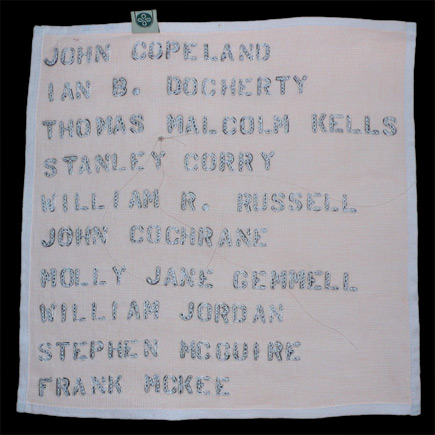 JOHN COPELAND
IAN B. DOCHERTY
THOMAS MALCOLM KELLS
STANLEY CORRY
WILLIAM R. RUSSELL
JOHN COCHRANE
MOLLY JANE GEMMELL
WILLIAM JORDAN
STEPHEN MCGUIRE
FRANK MCKEE